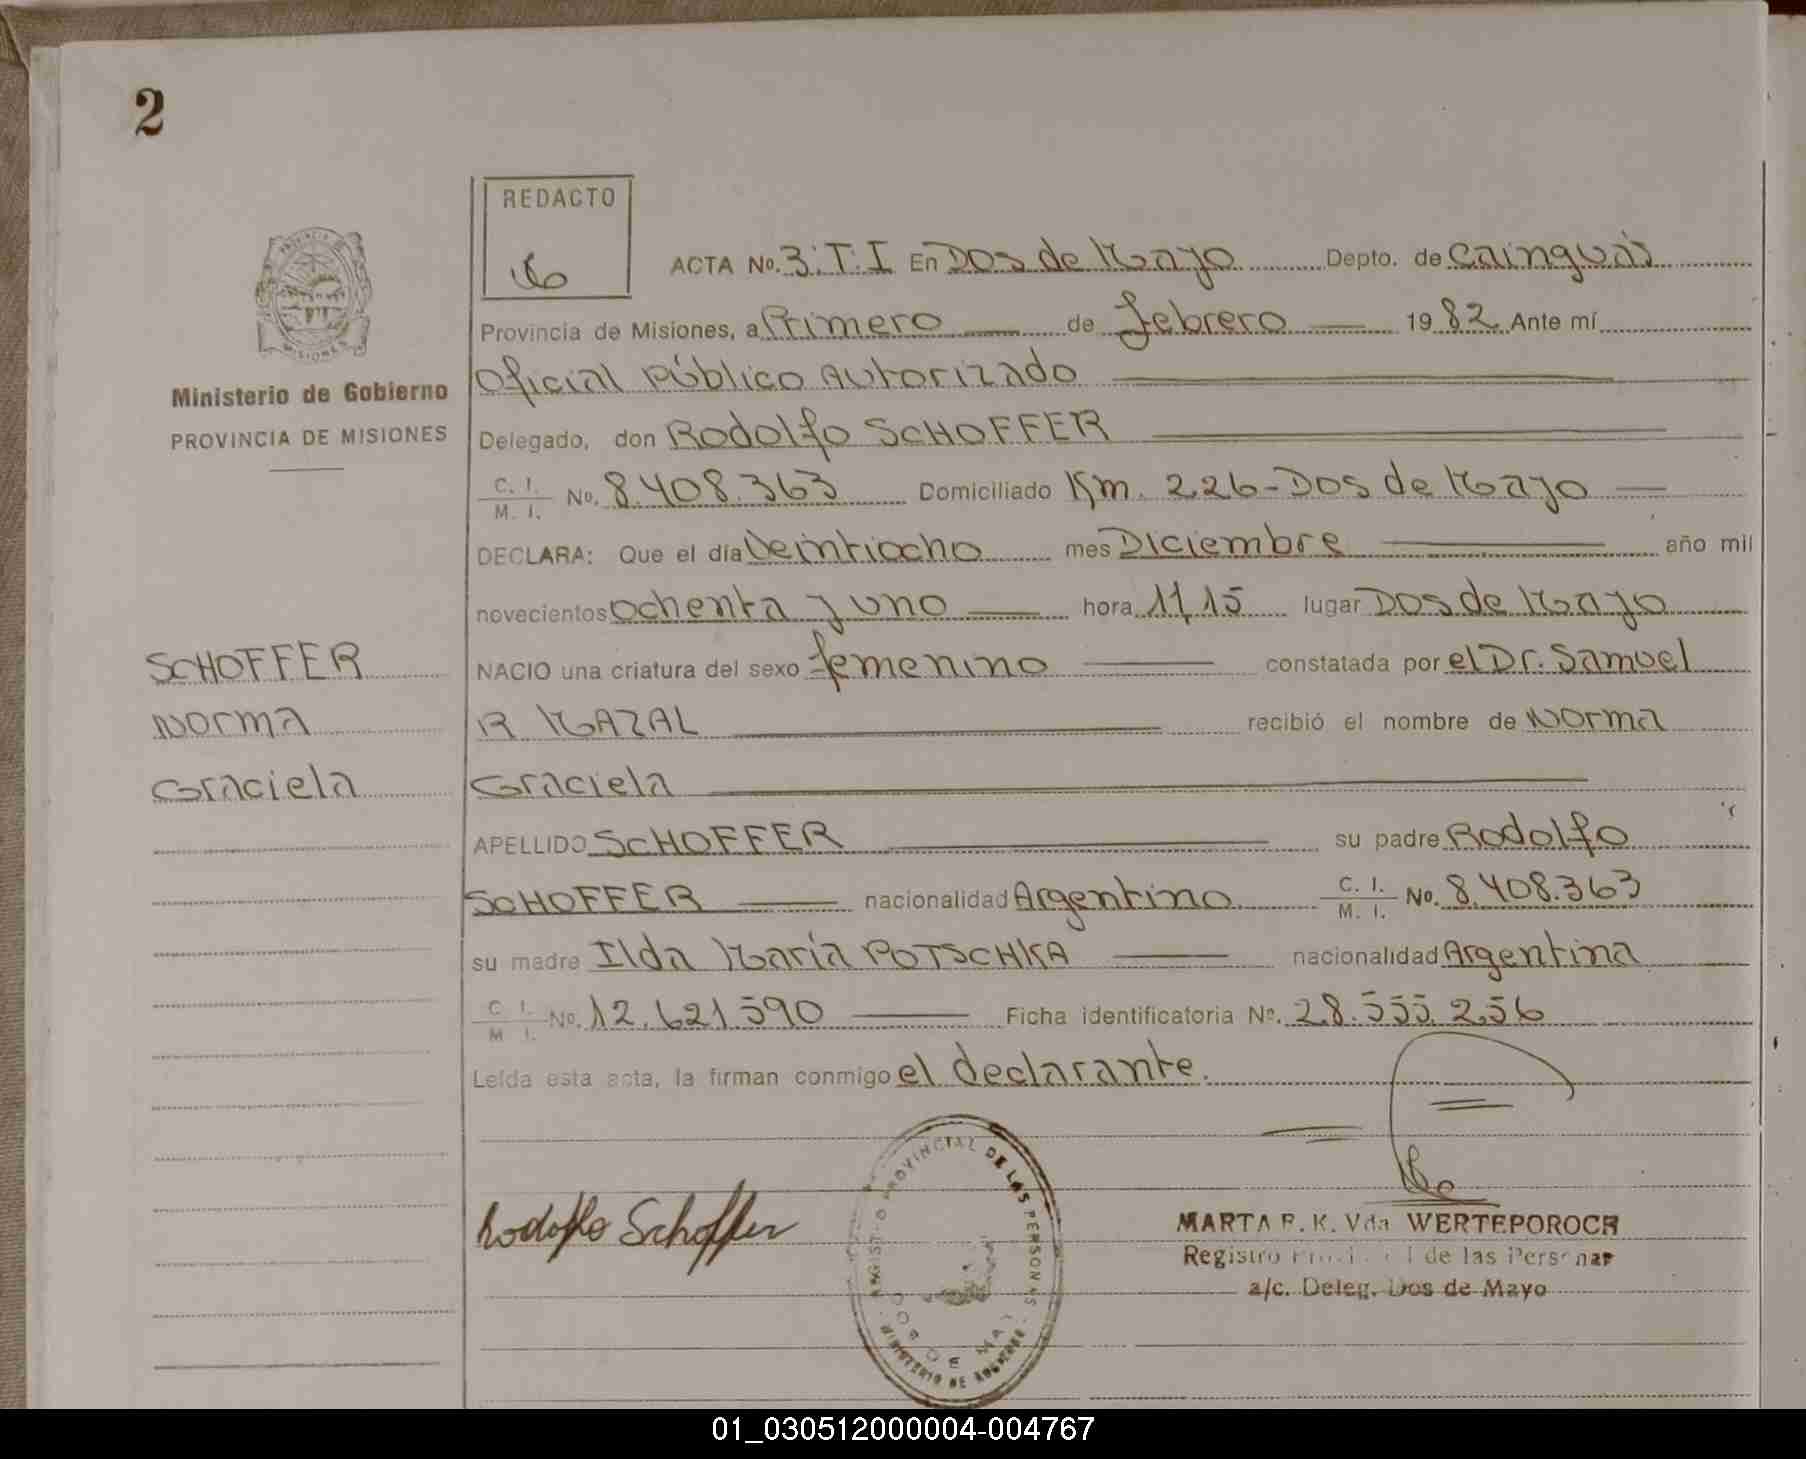 2
REDACTO
ACTA No. 3.T.I En Dos de Mayo Depto. de Cainguás
Provincia de Misiones, a Primero de febrero 1982 Ante mí
Oficial Público Autorizado
Ministerio de Gobierno
PROVINCIA DE MISIONES
Delegado, don Rodolfo SCHOFFER
C. I. M. I. No. 8.408.363 Domiciliado Km. 226-Dos de Mayo
DECLARA: Que el día Veintiocho mes Diciembre año mil
novecientos ochenta y uno hora 11,15 lugar Dos de Mayo
SCHOFFER
NACIO una criatura del sexo femenino constatada por el Dr. Samuel
Norma
R MAZAL recibió el nombre de Norma
Graciela
Graciela
APELLIDO SCHOFFER su padre Rodolfo
SCHOFFER nacionalidad Argentino C. I. M. I. No. 8.408.363
su madre Ilda María POTSCHKA nacionalidad Argentina
C. I. M I. No. 12.621.590 Ficha identificatoria No. 28.555.256
Leída esta acta, la firman conmigo el declarante.
Rodolfo Schoffer
PROVINCIAL DE LAS PERSONAS
DOS DE MAYO
MINISTERIO DE GOBIERNO
MARTA R. K. Vda WERTEPOROCH
Registro de las Personas
a/c. Deleg. Dos de Mayo
01_030512000004-004767